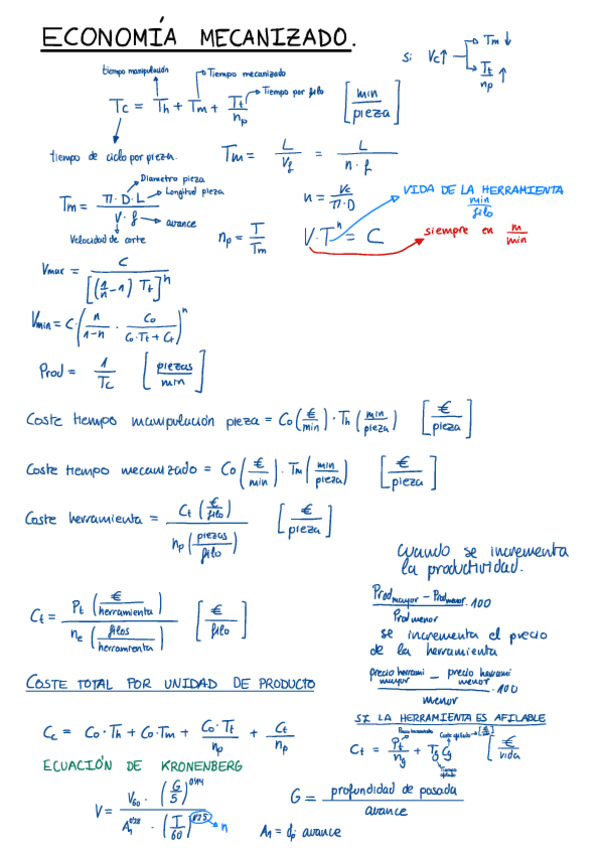 ECONOMÍA MECANIZADO.
Si Vc↑ → Tm ↓
→ Tt/np ↑
tiempo manipulación
Tiempo mecanizado
Tiempo por filo
Tc = Th + Tm + Tt/np [min/pieza]
tiempo de ciclo por pieza.
Tm = L/Vf = L/(n · f)
Diametro pieza
Longitud pieza
Tm = (π · D · L)/(V · f) → avance
Velocidad de corte
n = Vc/(π · D)
VIDA DE LA HERRAMIENTA min/filo
np = T/Tm
V · T^n = C
siempre en m/min
Vmax = C/[(1/n - 1) Tt]^n
Vmin = C · (n/(1-n) · Co/(Co · Tt + Ct))^n
Prod = 1/Tc [piezas/min]
Coste tiempo manipulación pieza = Co (€/min) · Th (min/pieza) [€/pieza]
Coste tiempo mecanizado = Co (€/min) · Tm (min/pieza) [€/pieza]
Coste herramienta = Ct (€/filo) / np (piezas/filo) [€/pieza]
Cuando se incrementa
la productividad.
(Prod mayor - Prod menor)/Prod menor · 100
Ct = Pt (€/herramienta) / ne (filos/herramienta) [€/filo]
se incrementa el precio
de la herramienta
(precio herrami mayor - precio herrami menor)/menor · 100
COSTE TOTAL POR UNIDAD DE PRODUCTO
SI LA HERRAMIENTA ES AFILABLE
Cc = Co · Th + Co · Tm + (Co · Tt)/np + Ct/np
Ct = Pt/ng + Tg Cg [€/vida
ECUACIÓN DE KRONENBERG
V = V60 · (G/5)^0'14 / (A1^0'28 · (T/60)^) → n
G = profundidad de pasada/avance
A1 = dp · avance